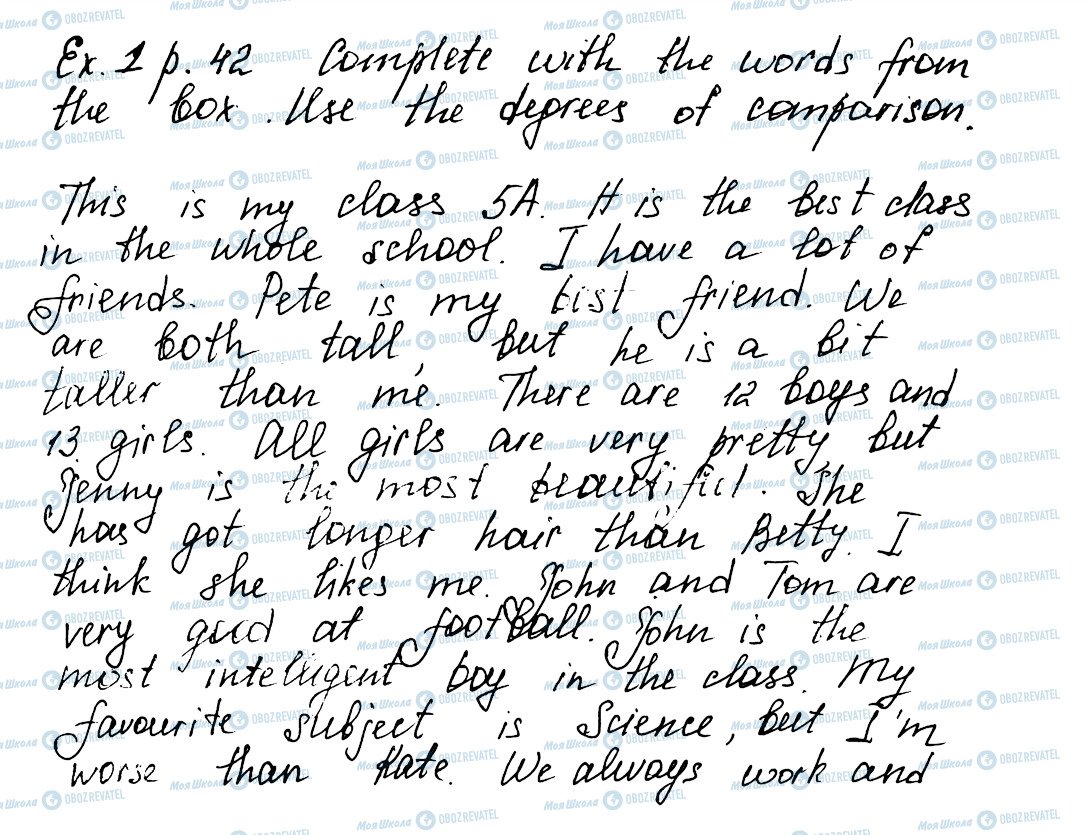 Ex. 1 p. 42 Complete with the words from
the box. Use the degrees of comparison.
This is my class 5A. It is the best class
in the whole school. I have a lot of
friends. Pete is my best friend. We
are both tall, but he is a bit
taller than me. There are 12 boys and
13 girls. All girls are very pretty, but
Jenny is the most beautiful. She
has got longer hair than Betty. I
think she likes me. John and Tom are
very good at football. John is the
most intelligent boy in the class. My
favourite subject is Science, but I'm
worse than Kate. We always work and
МояШкола OBOZREVATEL